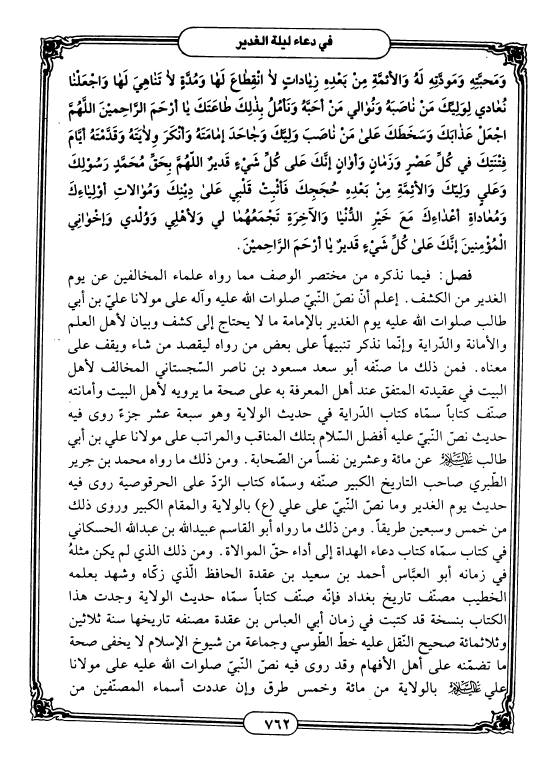 في دعاء ليلة الغدير
وَمَحَبَّتِهِ وَمَوَدَّتِهِ لَهُ وَالأَئِمَّةِ مِنْ بَعْدِهِ زِيَادَاتٍ لاَ انْقِطَاعَ لَهَا وَمُدَّةٍ لاَ تَنَاهِيَ لَهَا وَاجْعَلْنَا
نُعَادي لِوَلِيِّكَ مَنْ نَاصَبَهُ وَنُوَالي مَنْ أَحَبَّهُ وَنَأْمُلُ بِذَلِكَ طَاعَتَكَ يَا أَرْحَمَ الرَّاحِمينَ اللَّهُمَّ
اجْعَلْ عَذَابَكَ وَسَخَطَكَ عَلىٰ مَنْ نَاصَبَ وَلِيَّكَ وَجَاحَدَ إِمَامَتَهُ وَأَنْكَرَ وِلاَيَتَهُ وَقَدَّمَتْهُ أَيَّامَ
فِتْنَتِكَ في كُلِّ عَصْرٍ وَزَمَانٍ وَأَوَانٍ إِنَّكَ عَلى كُلِّ شَيْءٍ قَديرٌ اللَّهُمَّ بِحَقِّ مُحَمَّدٍ رَسُولِكَ
وَعَليٍ وَلِيِّكَ وَالأَئِمَّةِ مِنْ بَعْدِهِ حُجَجِكَ فَأَثْبِتْ قَلْبي عَلىٰ دِيْنِكَ وَمُوَالاتِ أَوْلِيَاءِكَ
وَمُعَاداةِ أَعْدَاءِكَ مَعَ خَيْرِ الدُّنْيَا وَالآخِرَةِ تَجْمَعُهُمَا لي وَلأَهْلِي وَوُلْدي وَإِخْوَاني
الْمُؤْمِنينَ إِنَّكَ عَلىٰ كُلِّ شَيْءٍ قَديرٌ يَا أَرْحَمَ الرَّاحِمِيْنَ.
فصل: فيما نذكره من مختصر الوصف مما رواه علماء المخالفين عن يوم
الغدير من الكشف. إعلم أنّ نصّ النبّيّ صلوات الله عليه وآله على مولانا عليّ بن أبي
طالب صلوات الله عليه يوم الغدير بالإمامة ما لا يحتاج إلى كشف وبيان لأهل العلم
والأمانة والدّراية وإنّما نذكر تنبيهاً على بعض من رواه ليقصد من شاء ويقف على
معناه. فمن ذلك ما صنّفه أبو سعد مسعود بن ناصر السّجستاني المخالف لأهل
البيت في عقيدته المتفق عند أهل المعرفة به على صحة ما يرويه لأهل البيت وأمانته
صنّف كتاباً سمّاه كتاب الدّراية في حديث الولاية وهو سبعة عشر جزءً روى فيه
حديث نصّ النبّيّ عليه أفضل السّلام بتلك المناقب والمراتب على مولانا علي بن أبي
طالب عليه السلام عن مائة وعشرين نفساً من الصّحابة. ومن ذلك ما رواه محمد بن جرير
الطّبري صاحب التاريخ الكبير صنّفه وسمّاه كتاب الردّ على الحرقوصية روى فيه
حديث يوم الغدير وما نصّ النّبيّ على علي (ع) بالولاية والمقام الكبير وروى ذلك
من خمس وسبعين طريقاً. ومن ذلك ما رواه أبو القاسم عبيدالله بن عبدالله الحسكاني
في كتاب سمّاه كتاب دعاء الهداة إلى أداء حقّ الموالاة. ومن ذلك الذي لم يكن مثلهُ
في زمانه أبو العبَّاس أحمد بن سعيد بن عقدة الحافظ الّذي زكّاه وشهد بعلمه
الخطيب مصنّف تاريخ بغداد فإنّه صنّف كتاباً سمّاه حديث الولاية وجدت هذا
الكتاب بنسخة قد كتبت في زمان أبي العباس بن عقدة مصنفه تاريخها سنة ثلاثين
وثلاثمائة صحيح النّقل عليه خطّ الطّوسي وجماعة من شيوخ الإسلام لا يخفى صحة
ما تضمّنه على أهل الأفهام وقد روى فيه نصّ النّبيّ صلوات الله عليه على مولانا
علي عليه السلام بالولاية من مائة وخمس طرق وإن عددت أسماء المصنّفين من
٧٦٢